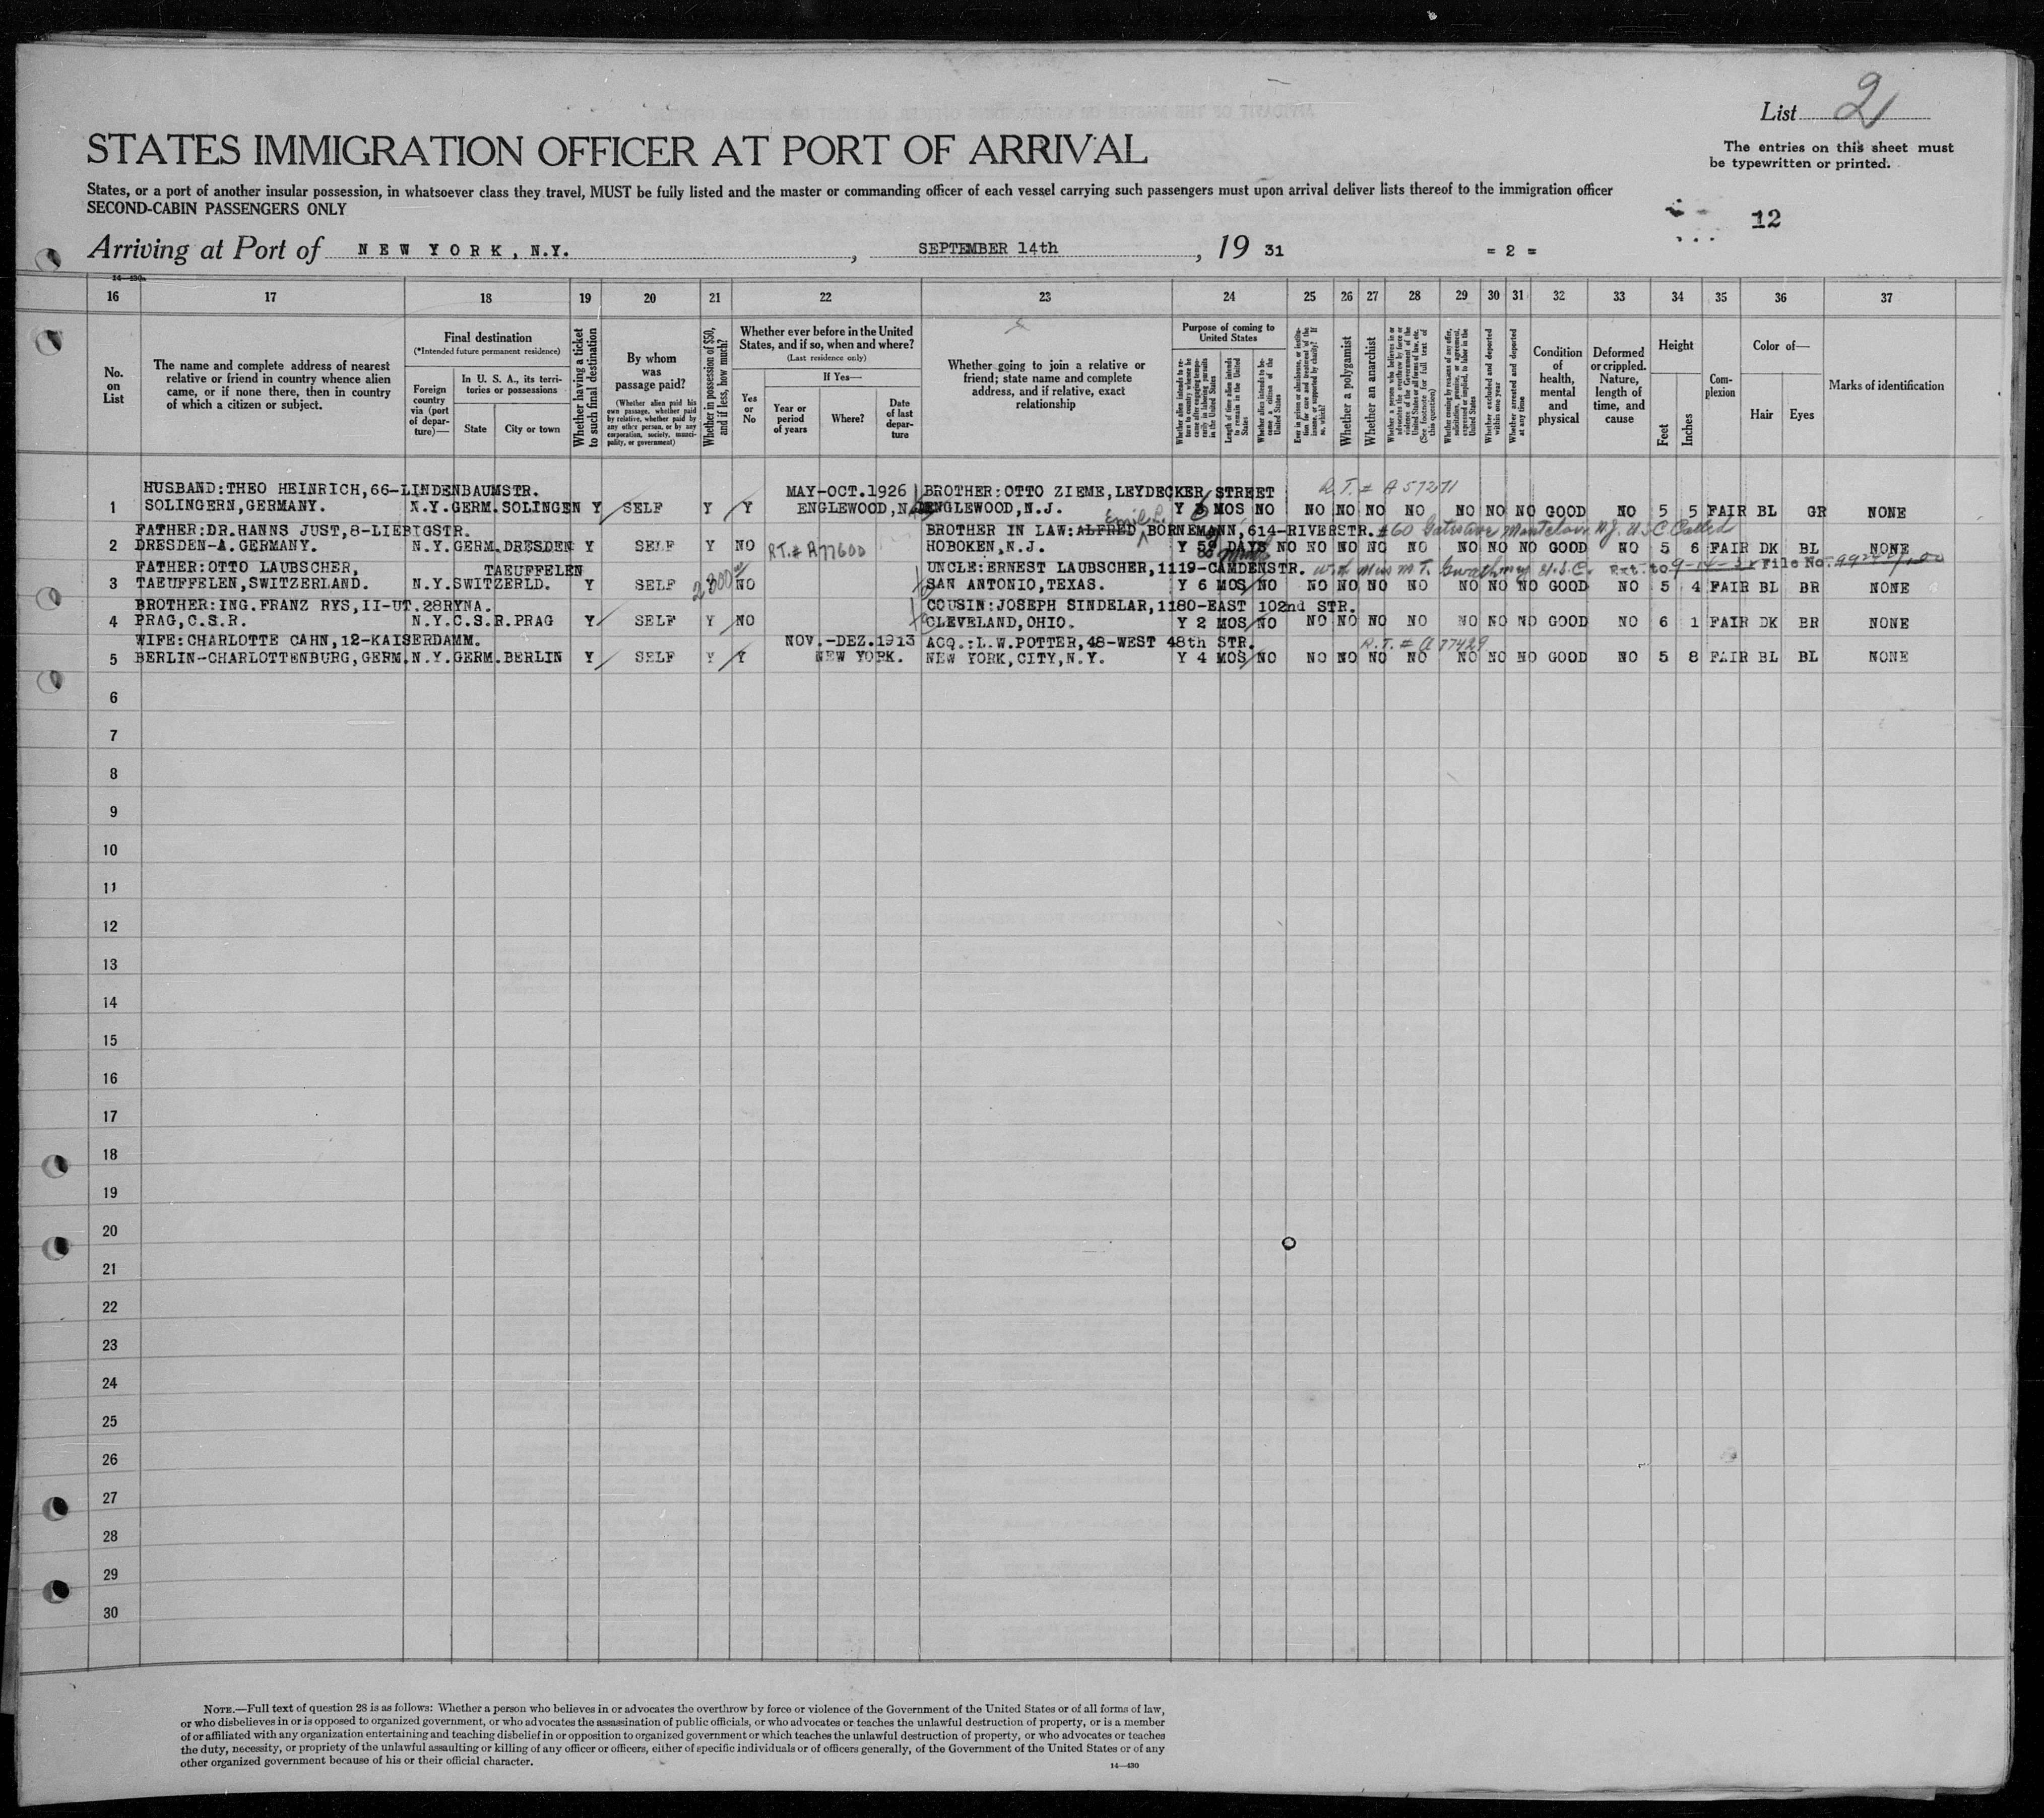 List 2
STATES IMMIGRATION OFFICER AT PORT OF ARRIVAL
The entries on this sheet must
be typewritten or printed.
States, or a port of another insular possession, in whatsoever class they travel, MUST be fully listed and the master or commanding officer of each vessel carrying such passengers must upon arrival deliver lists thereof to the immigration officer
SECOND-CABIN PASSENGERS ONLY
12
Arriving at Port of NEW YORK, N.Y. , SEPTEMBER 14th , 19 31 = 2 =
16 17 18 19 20 21 22 23 24 25 26 27 28 29 30 31 32 33 34 35 36 37
No.
on
List
The name and complete address of nearest
relative or friend in country whence alien
came, or if none there, then in country
of which a citizen or subject.
Final destination
(*Intended future permanent residence)
Foreign
country
via (port
of depar-
ture)—
In U. S. A., its terri-
tories or possessions
State City or town
Whether having a ticket
to such final destination
By whom
was
passage paid?
(Whether alien paid his
own passage, whether paid
by relative, whether paid by
any other person, or by any
corporation, society, munici-
pality, or government)
Whether in possession of $50,
and if less, how much?
Whether ever before in the United
States, and if so, when and where?
(Last residence only)
If Yes—
Yes
or
No
Year or
period
of years
Where?
Date
of last
depar-
ture
Whether going to join a relative or
friend; state name and complete
address, and if relative, exact
relationship
Purpose of coming to
United States
Whether alien intends to re-
turn to country whence he
came after engaging tempo-
rarily in laboring pursuits
in the United States
Length of time alien intends
to remain in the United
States
Whether alien intends to be-
come a citizen of the
United States
Ever in prison or almshouse, or institu-
tion for care and treatment of the
insane, or supported by charity? If
so, which?
Whether a polygamist
Whether an anarchist
Whether a person who believes in or
advocates the overthrow by force or
violence of the Government of the
United States or all forms of law, etc.
(See footnote for full text of
this question)
Whether coming by reason of any offer,
solicitation, promise, or agreement,
expressed or implied, to labor in the
United States
Whether excluded and deported
within one year
Whether arrested and deported
at any time
Condition
of
health,
mental
and
physical
Deformed
or crippled.
Nature,
length of
time, and
cause
Height
Feet Inches
Com-
plexion
Color of—
Hair Eyes
Marks of identification
HUSBAND:THEO HEINRICH,66-LINDENBAUMSTR. MAY-OCT.1926 BROTHER:OTTO ZIEME,LEYDECKER STREET R.T. # A 57271
1 SOLINGERN,GERMANY. N.Y.GERM.SOLINGEN Y SELF Y Y ENGLEWOOD,N. ENGLEWOOD,N.J. Y 6 MOS NO NO NO NO NO NO NO NO GOOD NO 5 5 FAIR BL GR NONE
FATHER:DR.HANNS JUST,8-LIEBIGSTR. BROTHER IN LAW:ALFRED Emil BORNEMANN,614-RIVERSTR. #60 Gates ave Montclair N.J. U.S.C. Called
2 DRESDEN-A.GERMANY. N.Y.GERM.DRESDEN Y SELF Y NO R.T.# A77600 HOBOKEN,N.J. Y 59 DAYS NO NO NO NO NO NO NO NO GOOD NO 5 6 FAIR DK BL NONE
FATHER:OTTO LAUBSCHER, TAEUFFELEN UNCLE:ERNEST LAUBSCHER,1119-CAMDENSTR. Ext. to 9-14-32 File No.
3 TAEUFFELEN,SWITZERLAND. N.Y.SWITZERLD. Y SELF NO SAN ANTONIO,TEXAS. Y 6 MOS NO NO NO NO NO NO NO NO GOOD NO 5 4 FAIR BL BR NONE
BROTHER:ING.FRANZ RYS,II-UT.28RYNA. COUSIN:JOSEPH SINDELAR,1180-EAST 102nd STR.
4 PRAG,C.S.R. N.Y.C.S.R.PRAG Y SELF Y NO CLEVELAND,OHIO. Y 2 MOS NO NO NO NO NO NO NO NO GOOD NO 6 1 FAIR DK BR NONE
WIFE:CHARLOTTE CAHN,12-KAISERDAMM. NOV.-DEZ.1913 ACQ.:L.W.POTTER,48-WEST 48th STR. R.T. # A 77429
5 BERLIN-CHARLOTTENBURG,GERM.N.Y.GERM.BERLIN Y SELF Y Y NEW YORK. NEW YORK,CITY,N.Y. Y 4 MOS NO NO NO NO NO NO NO NO GOOD NO 5 8 FAIR BL BL NONE
6
7
8
9
10
11
12
13
14
15
16
17
18
19
20
21
22
23
24
25
26
27
28
29
30
NOTE.—Full text of question 28 is as follows: Whether a person who believes in or advocates the overthrow by force or violence of the Government of the United States or of all forms of law,
or who disbelieves in or is opposed to organized government, or who advocates the assassination of public officials, or who advocates or teaches the unlawful destruction of property, or is a member
of or affiliated with any organization entertaining and teaching disbelief in or opposition to organized government or which teaches the unlawful destruction of property, or who advocates or teaches
the duty, necessity, or propriety of the unlawful assaulting or killing of any officer or officers, either of specific individuals or of officers generally, of the Government of the United States or of any
other organized government because of his or their official character.
14—430